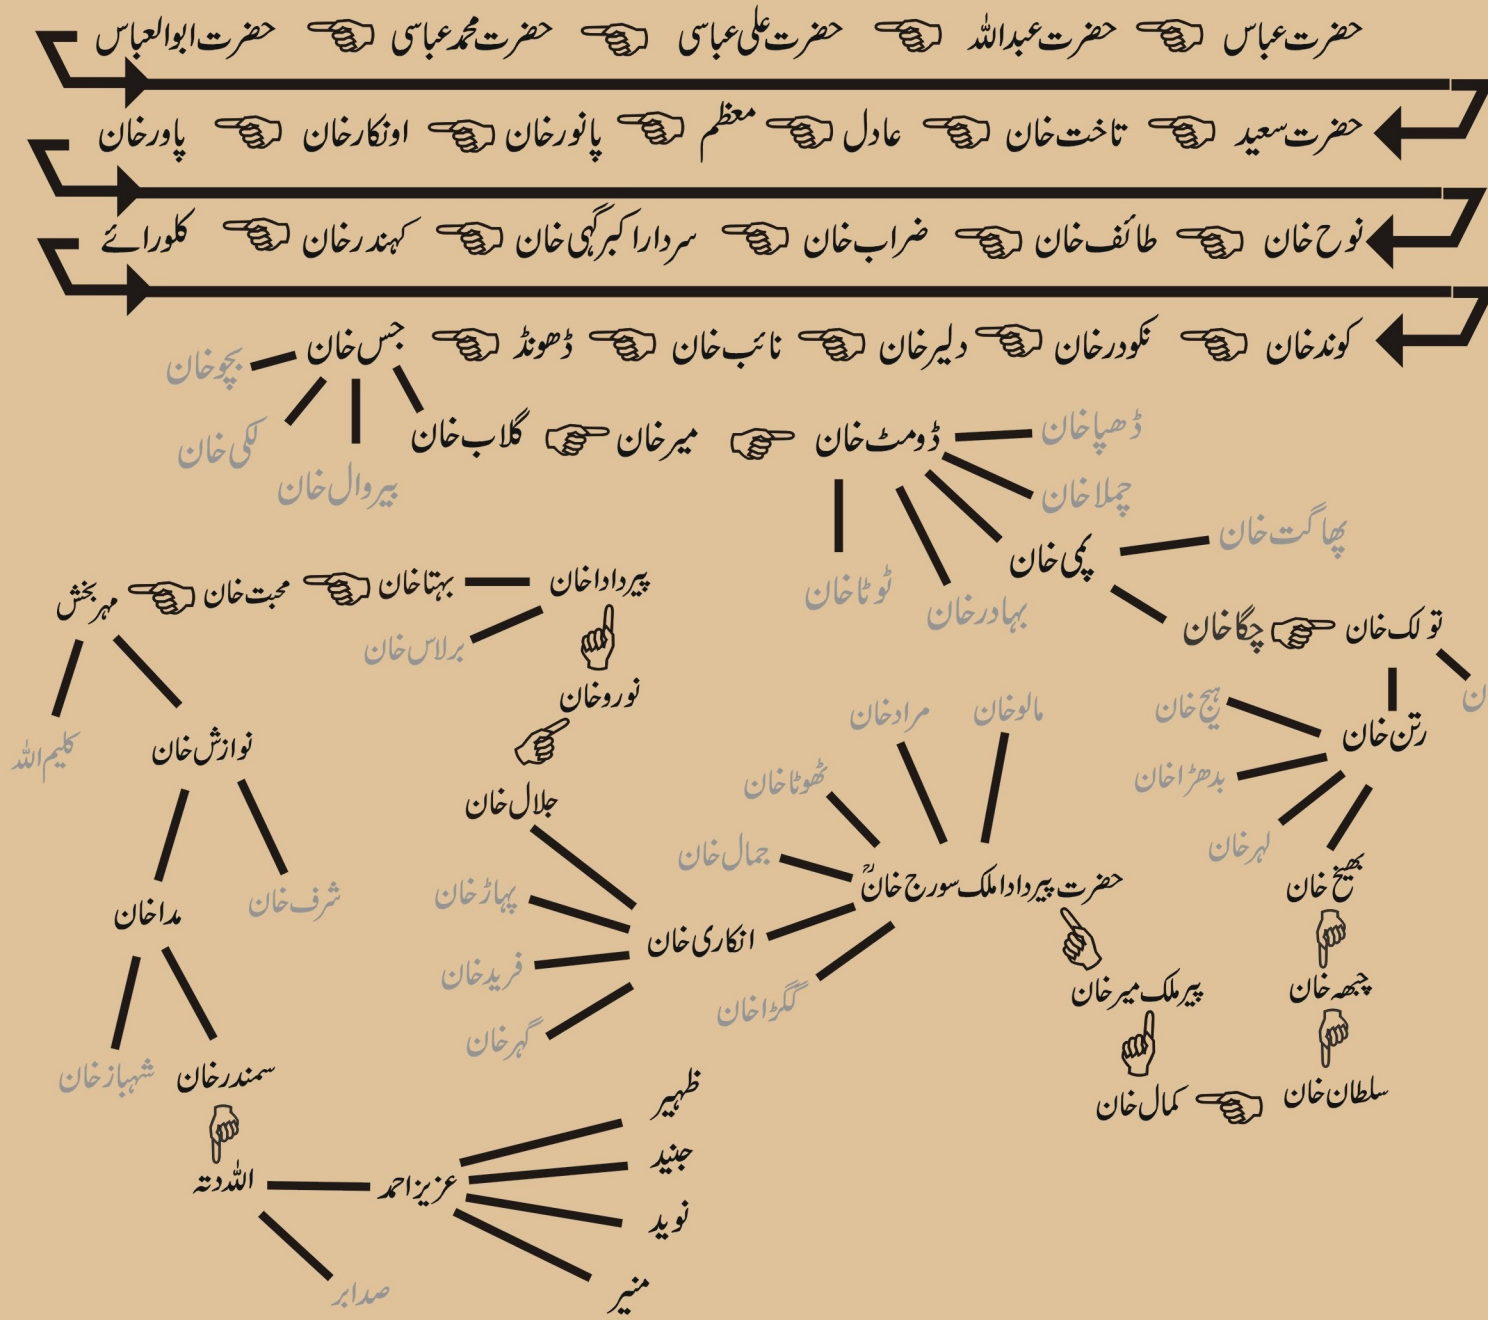 حضرت عباس حضرت عبداللہ حضرت علی عباسی حضرت محمد عباسی حضرت ابوالعباس
حضرت سعید تاخت خان عادل معظم پانور خان اونکار خان پاور خان
نوح خان طائف خان ضراب خان سردار اکبر گہی خان کہندر خان کلورائے
کوند خان نکودر خان دلیر خان نائب خان ڈھونڈ جس خان
بچو خان
لکی خان
بیروال خان
گلاب خان میر خان ڈومٹ خان
ڈھپا خان
چملا خان
پمی خان
پھاگت خان
بہادر خان
ٹوٹا خان
چگا خان تولک خان
رتن خان
ہیچ خان
بدھڑا خان
لہر خان
بھیخ خان
چبھہ خان
سلطان خان
کمال خان
پیر ملک میر خان
حضرت پیر دادا ملک سورج خانؒ
مالو خان
مراد خان
ٹھوٹا خان
جمال خان
انکاری خان
گگڑا خان
پہاڑ خان
فرید خان
گہر خان
جلال خان
نورو خان
پیر دادا خان
بہتا خان محبت خان مہر بخش
برلاس خان
کلیم اللہ
نوازش خان
شرف خان
مدا خان
شہباز خان
سمندر خان
اللہ دتہ
صدابر
عزیز احمد
ظہیر
جنید
نوید
منیر